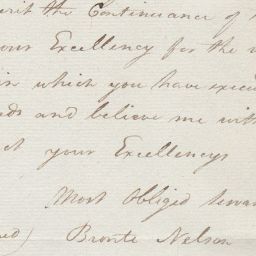 the Continuance of
your Excellency for the
in which you have
and believe me with
your Excellencys
Most Obliged
Bronte Nelson